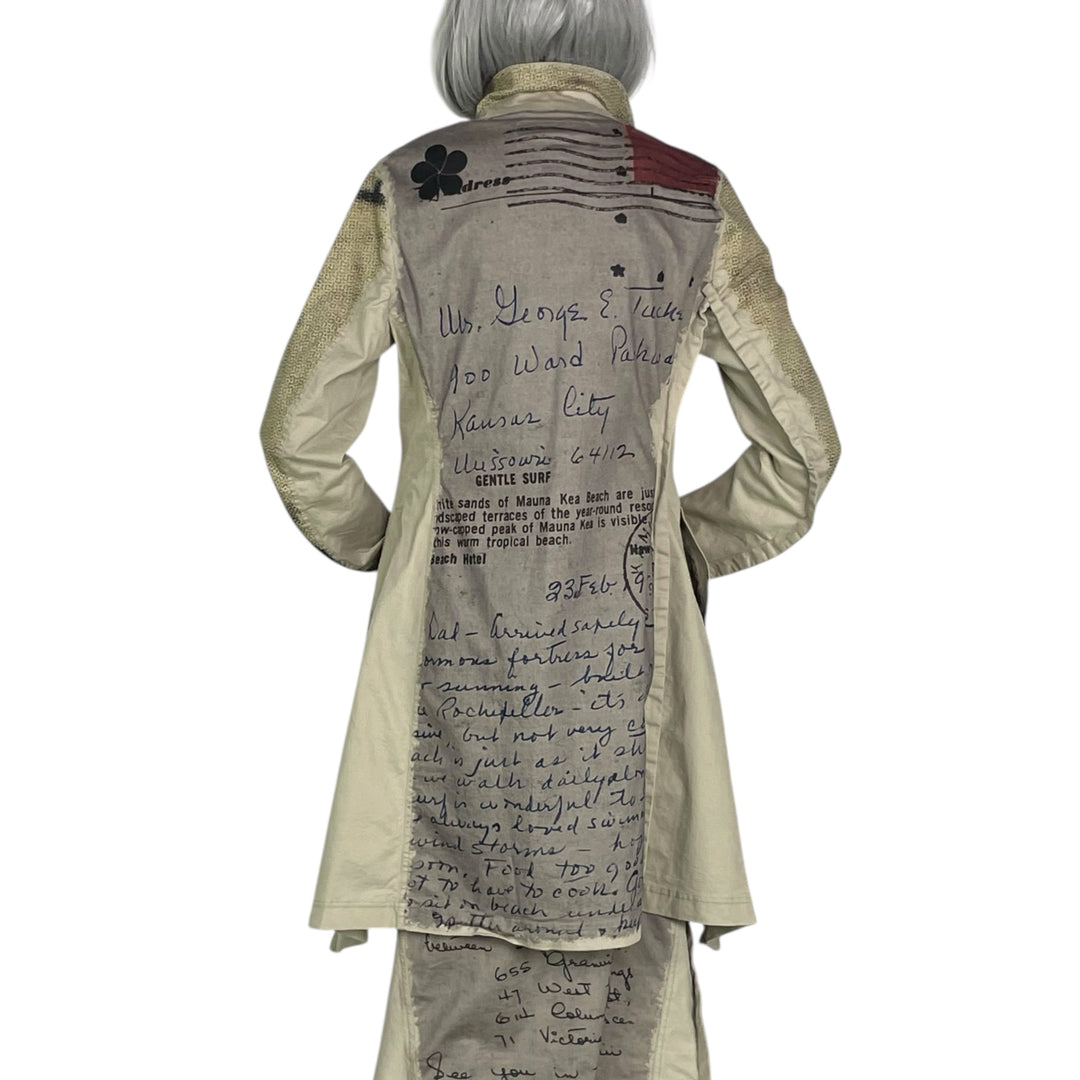 dress
Mr. George E. Tucke
400 Ward Pakwa
Kansas City
Missouri 64112
GENTLE SURF
hite sands of Mauna Kea Beach are jus
ndscaped terraces of the year-round reso
ow-capped peak of Mauna Kea is visible
this warm tropical beach.
Beach Hotel
Haw
23 Feb. 9
Dad - Arrived safely
ormous fortress for
r sunning - built
e Rockefeller - it's
sive, but not very co
ach is just as it sh
we walk daily alon
urf is wonderful to
always loved swimm
wind storms - hop
soon. Food too good
ot to have to cook. Go
o sit on beach under a
around & keep
between
655 Granvi
ngs
47 West
st.,
614 Colum
71 Victori
See you in